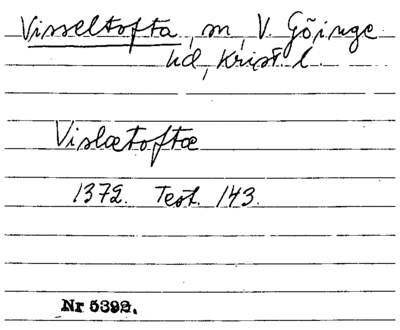 Visseltofta, sn, V. Göinge
hd, Krist. l.
Vislætoftæ
1372. Test. 143.
Nr 5392.